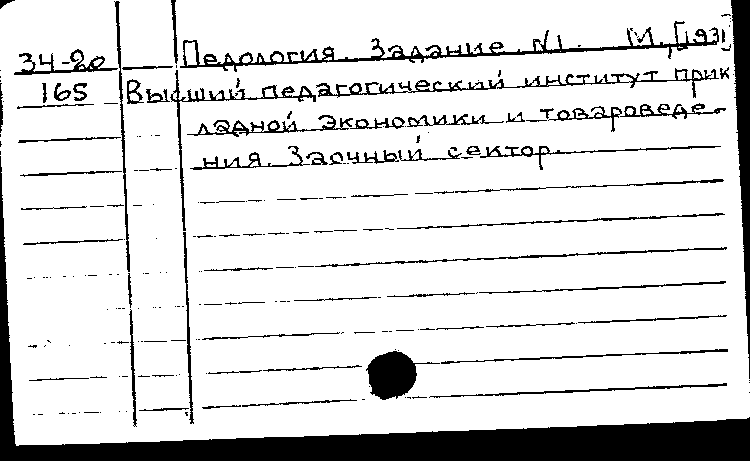 34-20 Педология. Задание N1. М., [1931
165 Высший педагогический институт прик
ладной экономики и товароведе-
ния. Заочный сектор.